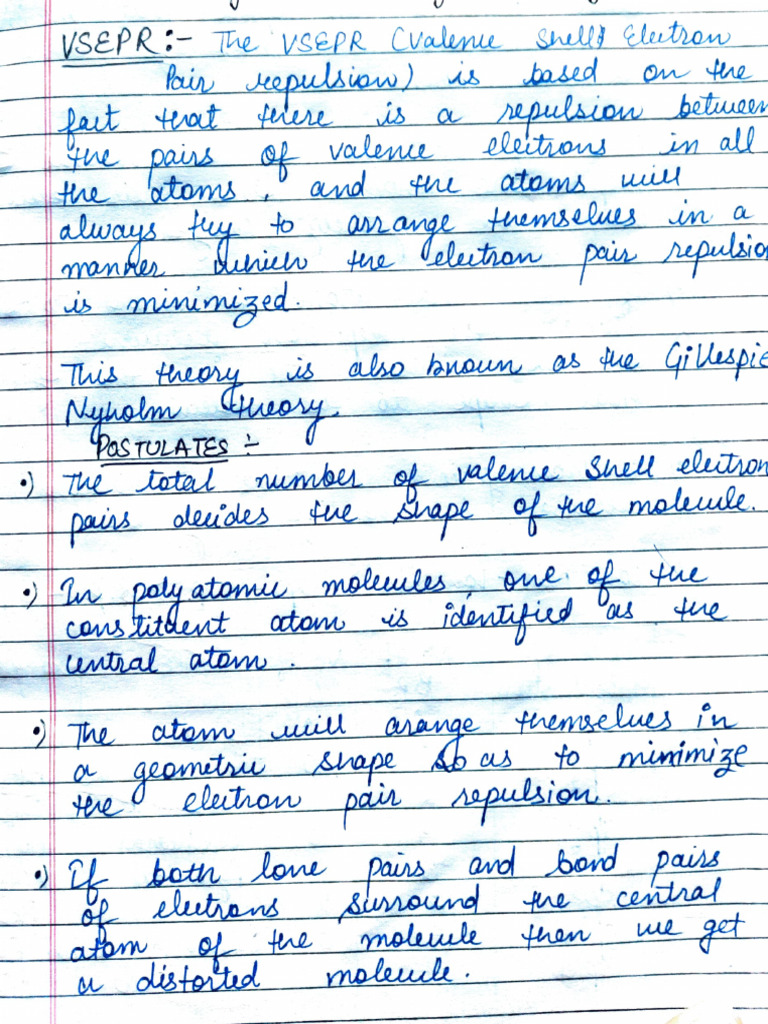 VSEPR :- The VSEPR (Valence Shell Electron
Pair repulsion) is based on the
fact that there is a repulsion between
the pairs of valence electrons in all
the atoms, and the atoms will
always try to arrange themselves in a
manner which the electron pair repulsion
is minimized.
This theory is also known as the Gillespie
Nyholm theory.
POSTULATES :-
•) The total number of valence shell electron
pairs decides the shape of the molecule.
•) In polyatomic molecules, one of the
constituent atom is identified as the
central atom.
•) The atom will arange themselves in
a geometric shape so as to minimize
the electron pair repulsion.
•) If both lone pairs and bond pairs
of electrons surround the central
atom of the molecule then we get
a distorted molecule.